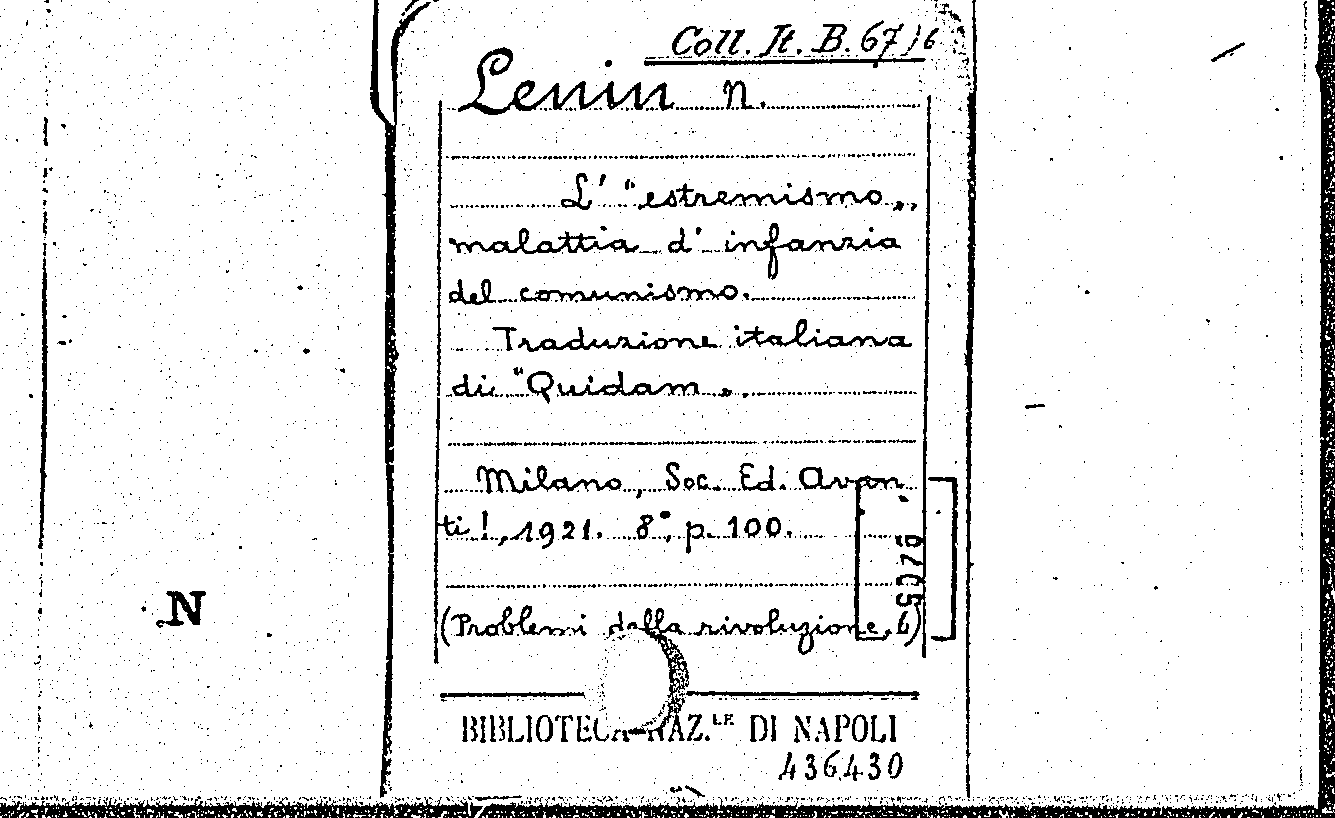 Coll. It. B. 67/6
Lenin n.
L' "estremismo",
malattia d' infanzia
del comunismo.
Traduzione italiana
di "Quidam".
Milano, Soc. Ed. Avan
ti!, 1921. 8°, p. 100.
(Problemi della rivoluzione, 6)
BIBLIOTECA NAZ.LE DI NAPOLI
436430
N